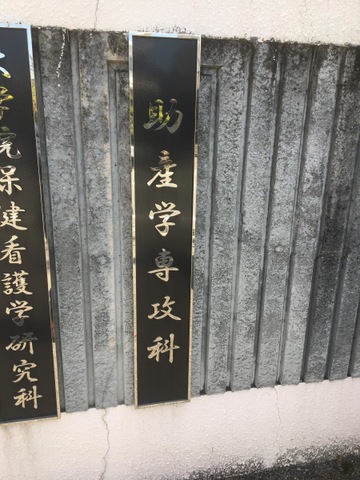 助産学専攻科
大学院保健看護学研究科